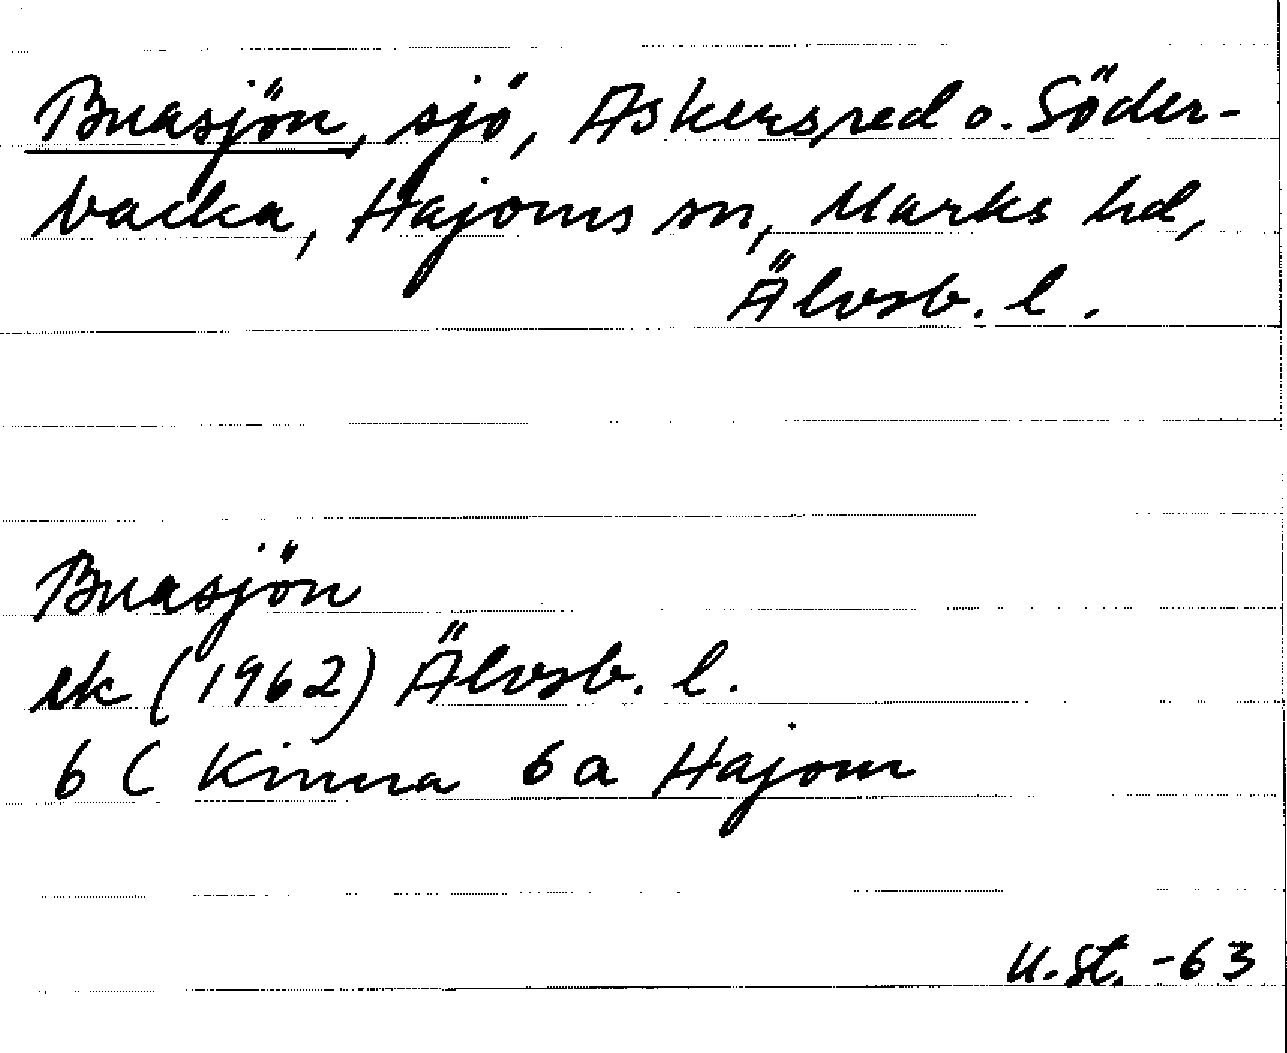 Buasjön, sjö, Askersred o. Söder-
backa, Hajoms sn, Marks hd,
Älvsb. l.
Buasjön
ek (1962) Älvsb. l.
6 C Kinna 6a Hajom
U. St. -63